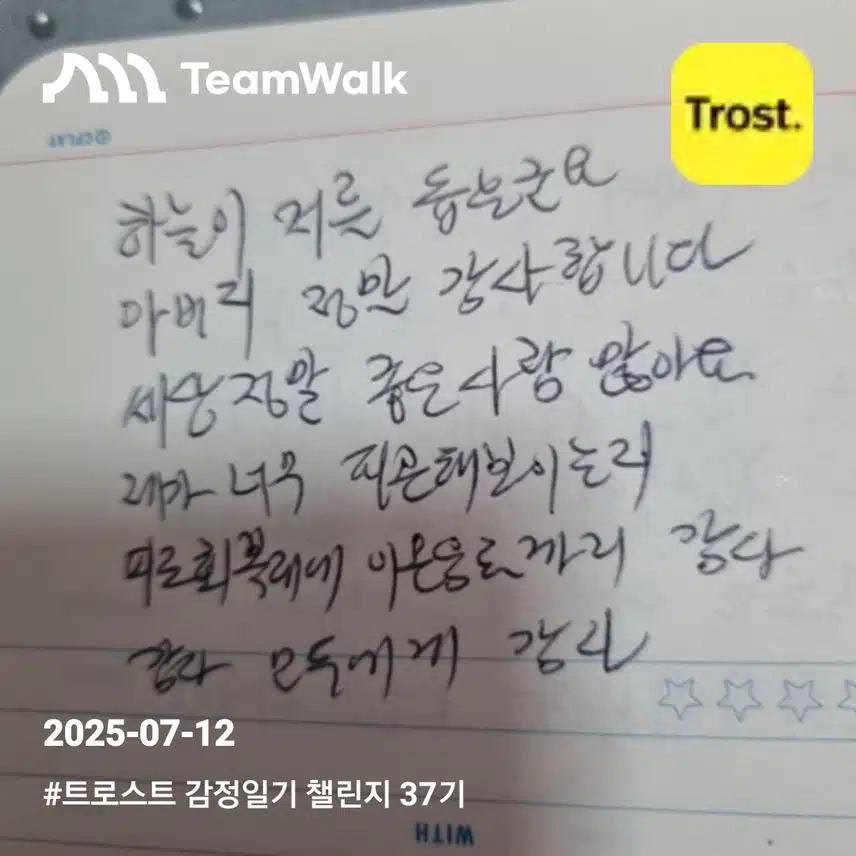 TeamWalk
Trost.
하늘이 저를 돕는군요
아버지 정말 감사합니다
세상정말 좋은사람 많아요
제가 너무 피곤해보이는지
피로회복제에 이온음료까지 감사
감사 모두에게 감사
2025-07-12
#트로스트 감정일기 챌린지 37기
WITH